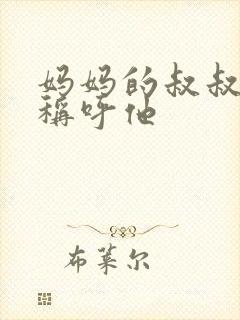 妈妈的叔叔
稱呼他
布莱尔